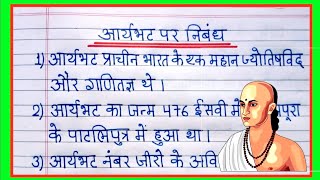 आर्यभट पर निबंध
1) आर्यभट प्राचीन भारत के एक महान ज्योतिषविद्
और गणितज्ञ थे।
2) आर्यभट का जन्म 476 ईसवी में पूरा
के पाटलिपुत्र में हुआ था।
3) आर्यभट नंबर जीरो के अवि